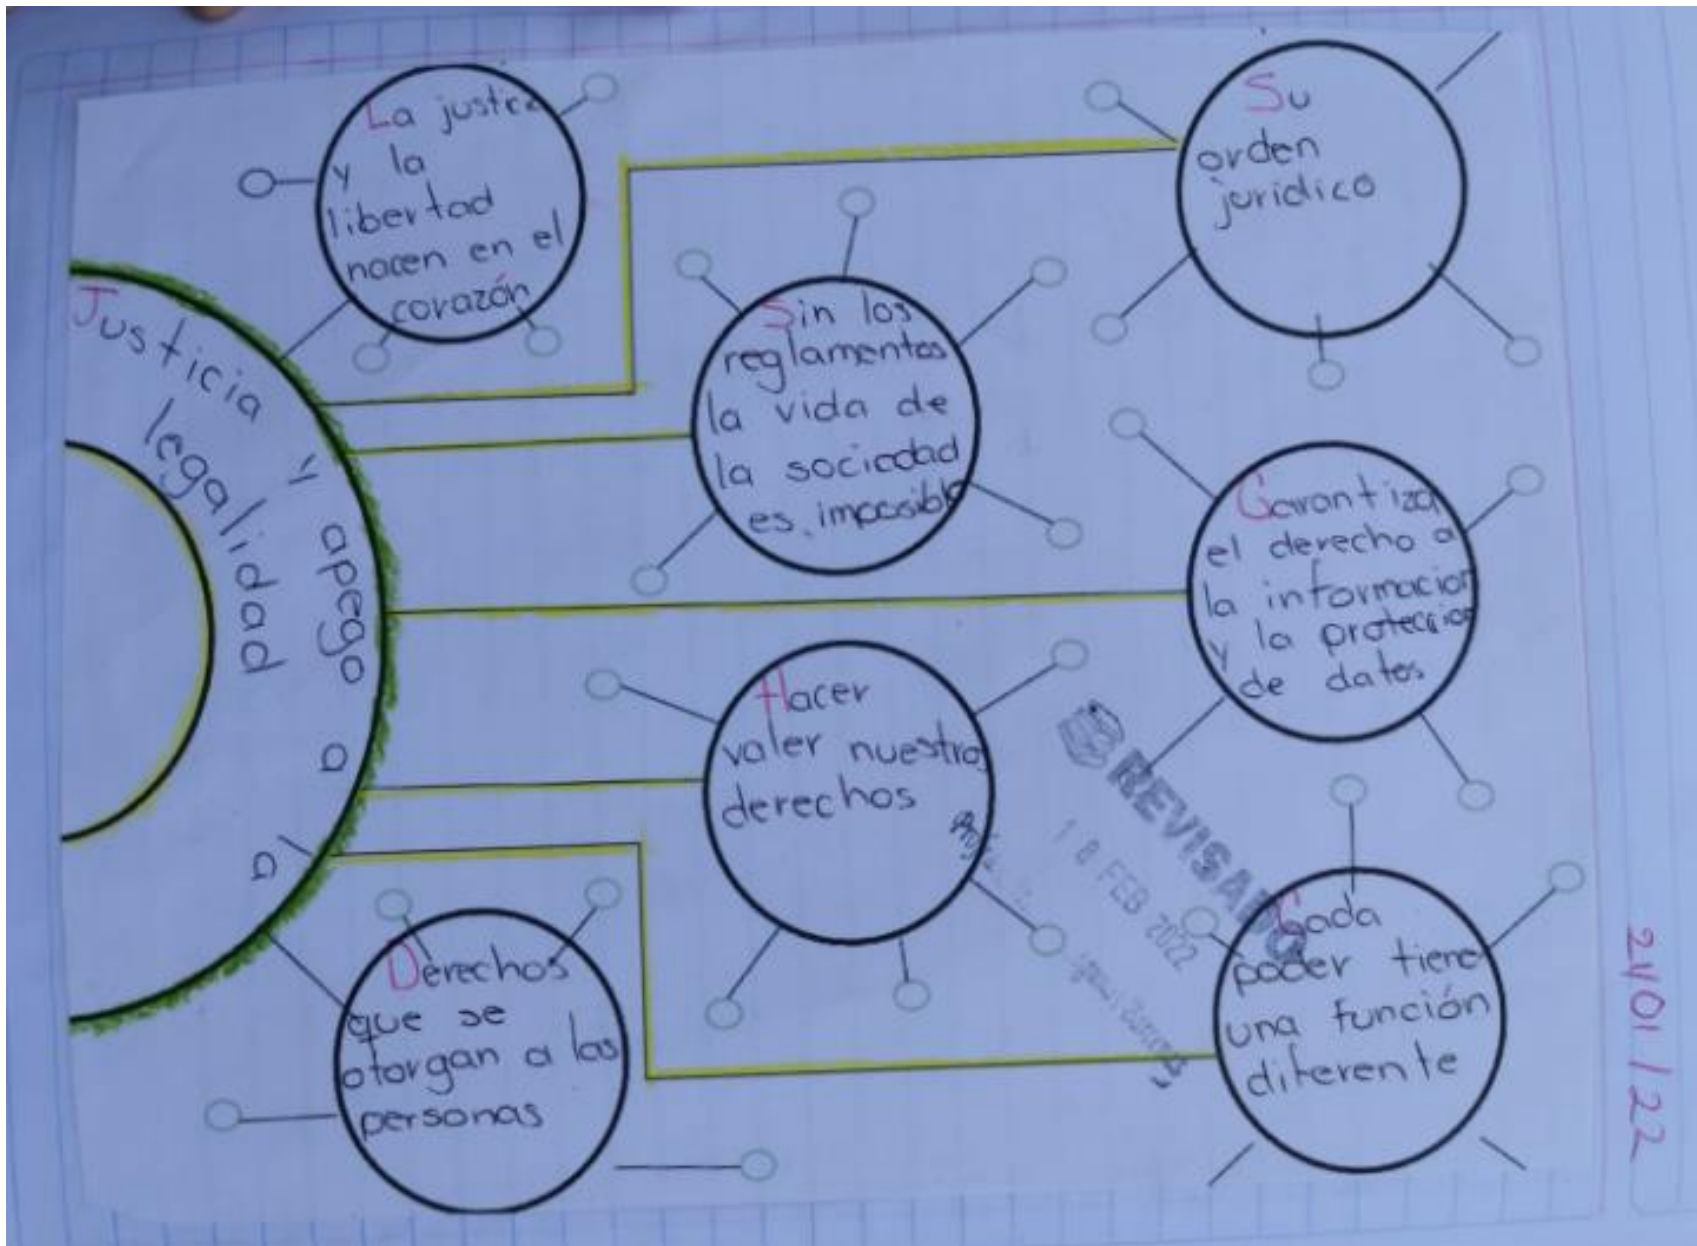 Justicia y apego a
la
legalidad
La justicia
y la
libertad
nacen en el
corazón
Su
orden
juridico
Sin los
reglamentos
la vida de
la sociedad
es imposible
Garantiza
el derecho a
la informacion
y la proteccion
de datos
Hacer
valer nuestros
derechos
Derechos
que se
otorgan a las
personas
Cada
poder tiene
una función
diferente
REVISADO
18 FEB 2022
24/01/22